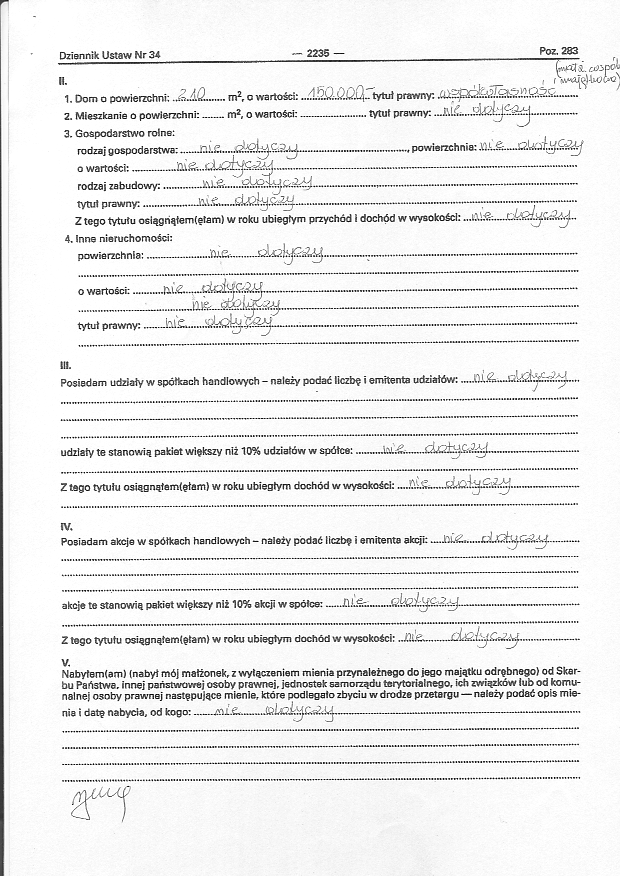 Dziennik Ustaw Nr 34 — 2235 — Poz. 283
II.
1. Dom o powierzchni: 210 m², o wartości: 150.000,- tytuł prawny: współwłasność
2. Mieszkanie o powierzchni: ........ m², o wartości: ........................ tytuł prawny: nie dotyczy
3. Gospodarstwo rolne:
rodzaj gospodarstwa: nie dotyczy, powierzchnia: nie dotyczy
o wartości: nie dotyczy
rodzaj zabudowy: nie dotyczy
tytuł prawny: nie dotyczy
Z tego tytułu osiągnąłem(ęłam) w roku ubiegłym przychód i dochód w wysokości: nie dotyczy
4. Inne nieruchomości:
powierzchnia: nie dotyczy
o wartości: nie dotyczy
nie dotyczy
tytuł prawny: nie dotyczy
III.
Posiadam udziały w spółkach handlowych – należy podać liczbę i emitenta udziałów: nie dotyczy
udziały te stanowią pakiet większy niż 10% udziałów w spółce: nie dotyczy
Z tego tytułu osiągnąłem(ęłam) w roku ubiegłym dochód w wysokości: nie dotyczy
IV.
Posiadam akcje w spółkach handlowych – należy podać liczbę i emitenta akcji: nie dotyczy
akcje te stanowią pakiet większy niż 10% akcji w spółce: nie dotyczy
Z tego tytułu osiągnąłem(ęłam) w roku ubiegłym dochód w wysokości: nie dotyczy
V.
Nabyłem(am) (nabył mój małżonek, z wyłączeniem mienia przynależnego do jego majątku odrębnego) od Skar-
bu Państwa, innej państwowej osoby prawnej, jednostek samorządu terytorialnego, ich związków lub od komu-
nalnej osoby prawnej następujące mienie, które podlegało zbyciu w drodze przetargu — należy podać opis mie-
nia i datę nabycia, od kogo: nie dotyczy